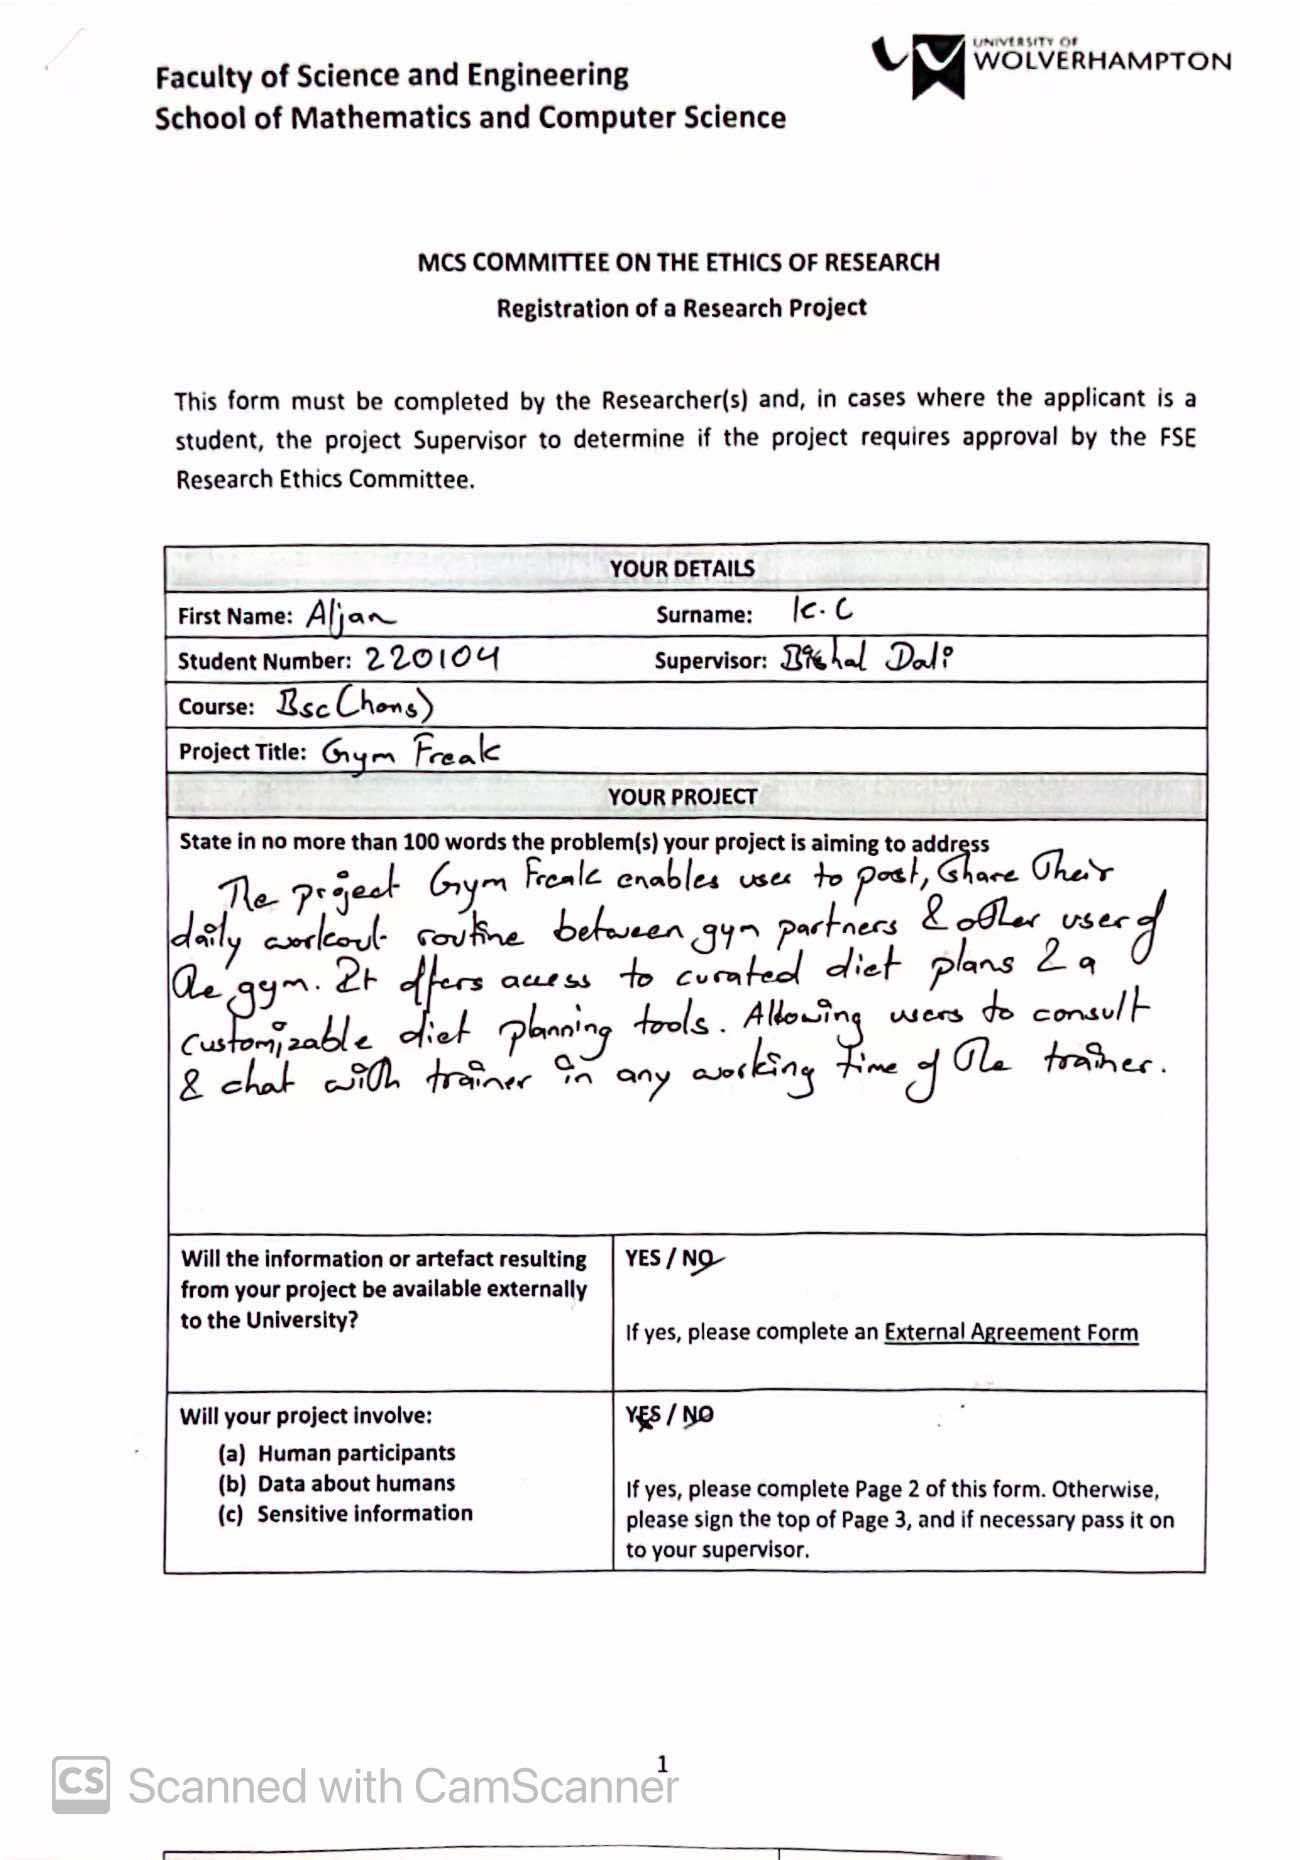 UNIVERSITY OF
WOLVERHAMPTON
Faculty of Science and Engineering
School of Mathematics and Computer Science
MCS COMMITTEE ON THE ETHICS OF RESEARCH
Registration of a Research Project
This form must be completed by the Researcher(s) and, in cases where the applicant is a
student, the project Supervisor to determine if the project requires approval by the FSE
Research Ethics Committee.
YOUR DETAILS
First Name: Aljan Surname: K.C
Student Number: 220104 Supervisor: Bishal Dali
Course: Bsc (hons)
Project Title: Gym Freak
YOUR PROJECT
State in no more than 100 words the problem(s) your project is aiming to address
The project Gym Freak enables user to post, share their
daily workout routine between gym partners & other user of
the gym. It offers access to curated diet plans & a
customizable diet planning tools. Allowing users to consult
& chat with trainer in any working time of the trainer.
Will the information or artefact resulting
from your project be available externally
to the University?
YES / NO
If yes, please complete an External Agreement Form
Will your project involve:
(a) Human participants
(b) Data about humans
(c) Sensitive information
YES / NO
If yes, please complete Page 2 of this form. Otherwise,
please sign the top of Page 3, and if necessary pass it on
to your supervisor.
1
CS Scanned with CamScanner